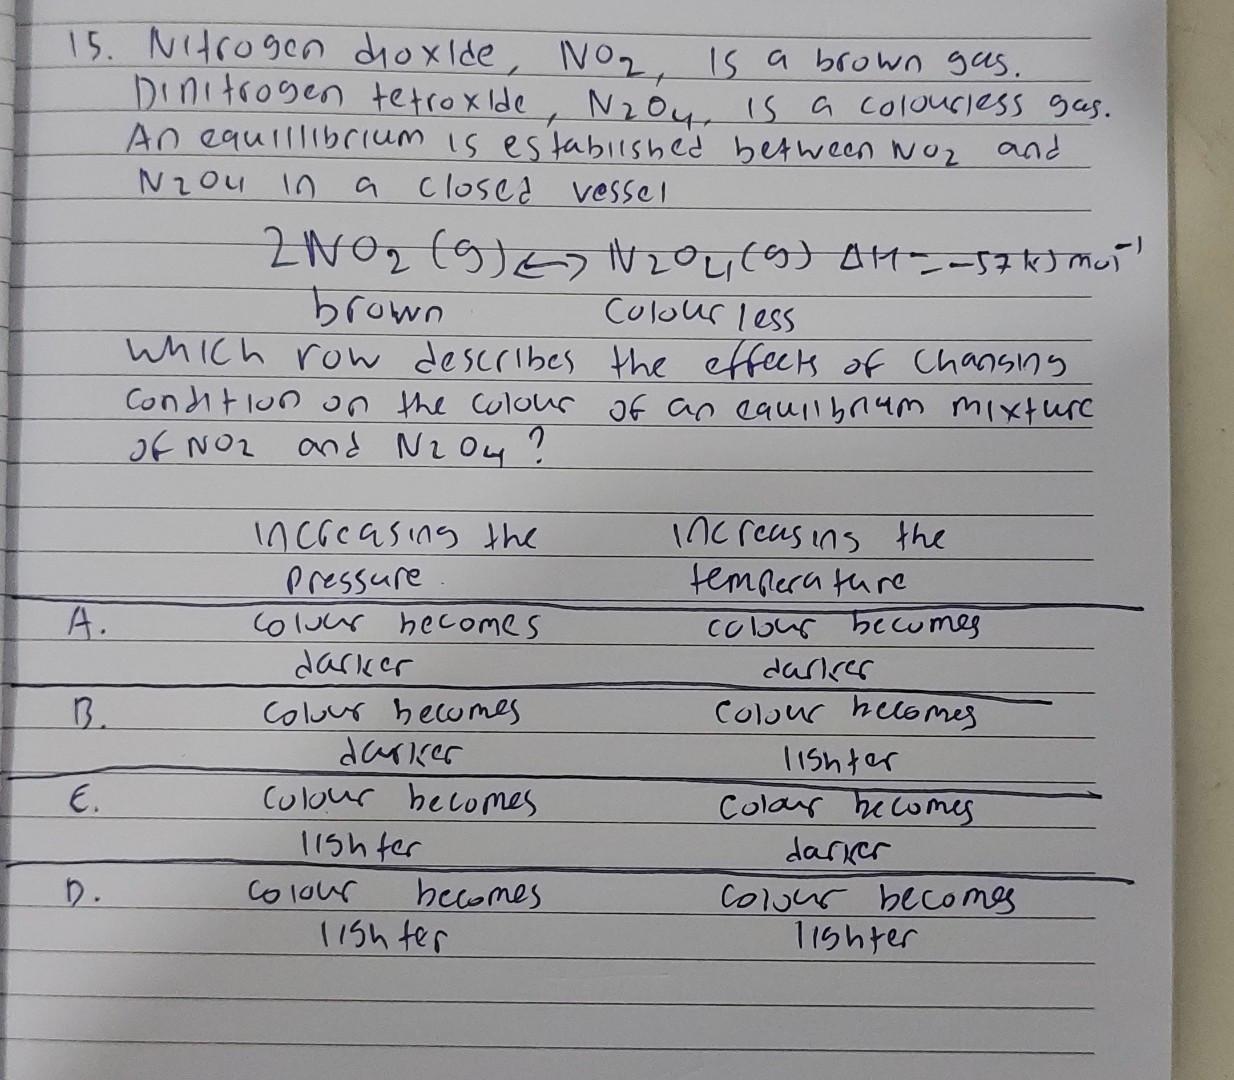 15. Nitrogen dioxide, NO2, is a brown gas.
Dinitrogen tetroxide, N2O4, is a colourless gas.
An equillibrium is established between NO2 and
N2O4 in a closed vessel
2NO2 (g) ↔ N2O4 (g) ΔH = -57 kJ mol⁻¹
brown colourless
Which row describes the effects of changing
condition on the colour of an equilibrium mixture
of NO2 and N2O4?
increasing the increasing the
pressure. temperature
A. colour becomes colour becomes
darker darker
B. colour becomes colour becomes
darker lighter
C. colour becomes colour becomes
lighter darker
D. colour becomes colour becomes
lighter lighter